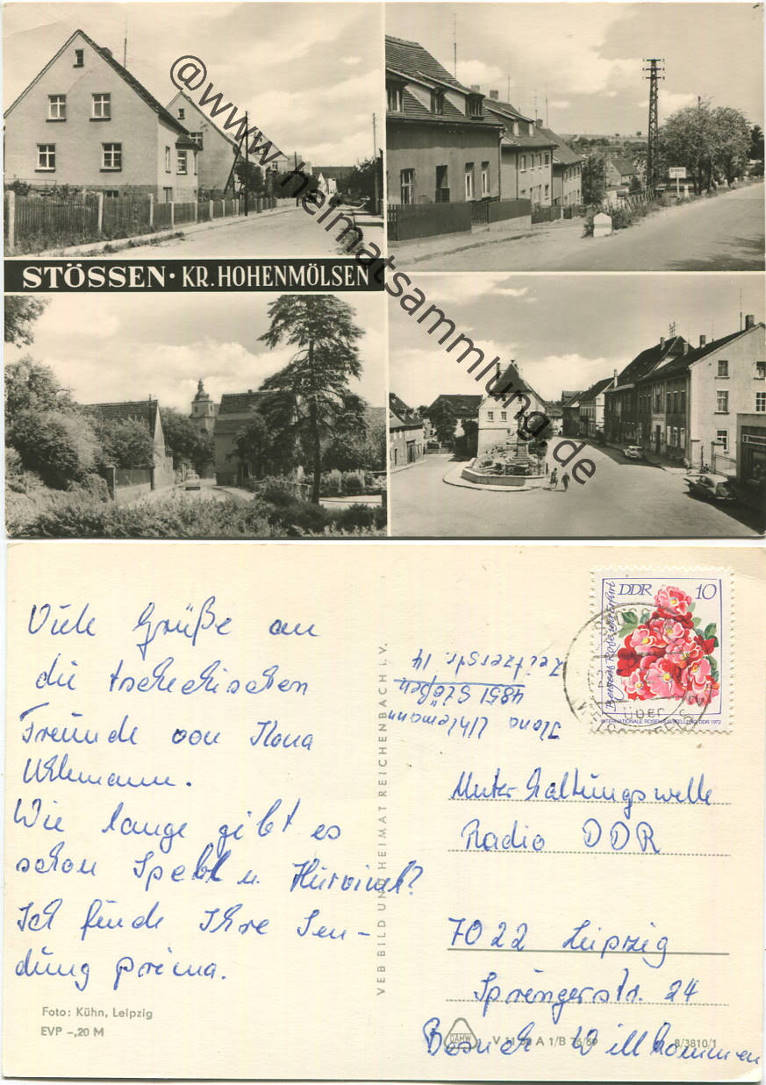 @www.heimatsammlung.de
STÖSSEN · KR. HOHENMÖLSEN
Viele Grüße an
die tschechischen
Freunde von Ilona
Uhlemann.
Wie lange gibt es
schon Speibl u. Hurvinek?
Ich finde Ihre Sen-
dung prima.
Foto: Kühn, Leipzig
EVP -,20 M
VEB BILD UND HEIMAT REICHENBACH I. V.
Ilona Uhlemann
4851 Stößen
Zeitzerstr. 14
DDR 10
INTERNATIONALE ROSENAUSSTELLUNG DDR 1972
Unterhaltungswelle
Radio DDR
7022 Leipzig
Springerstr. 24
Besuch Willkommen
A 1/B
8/3810/1